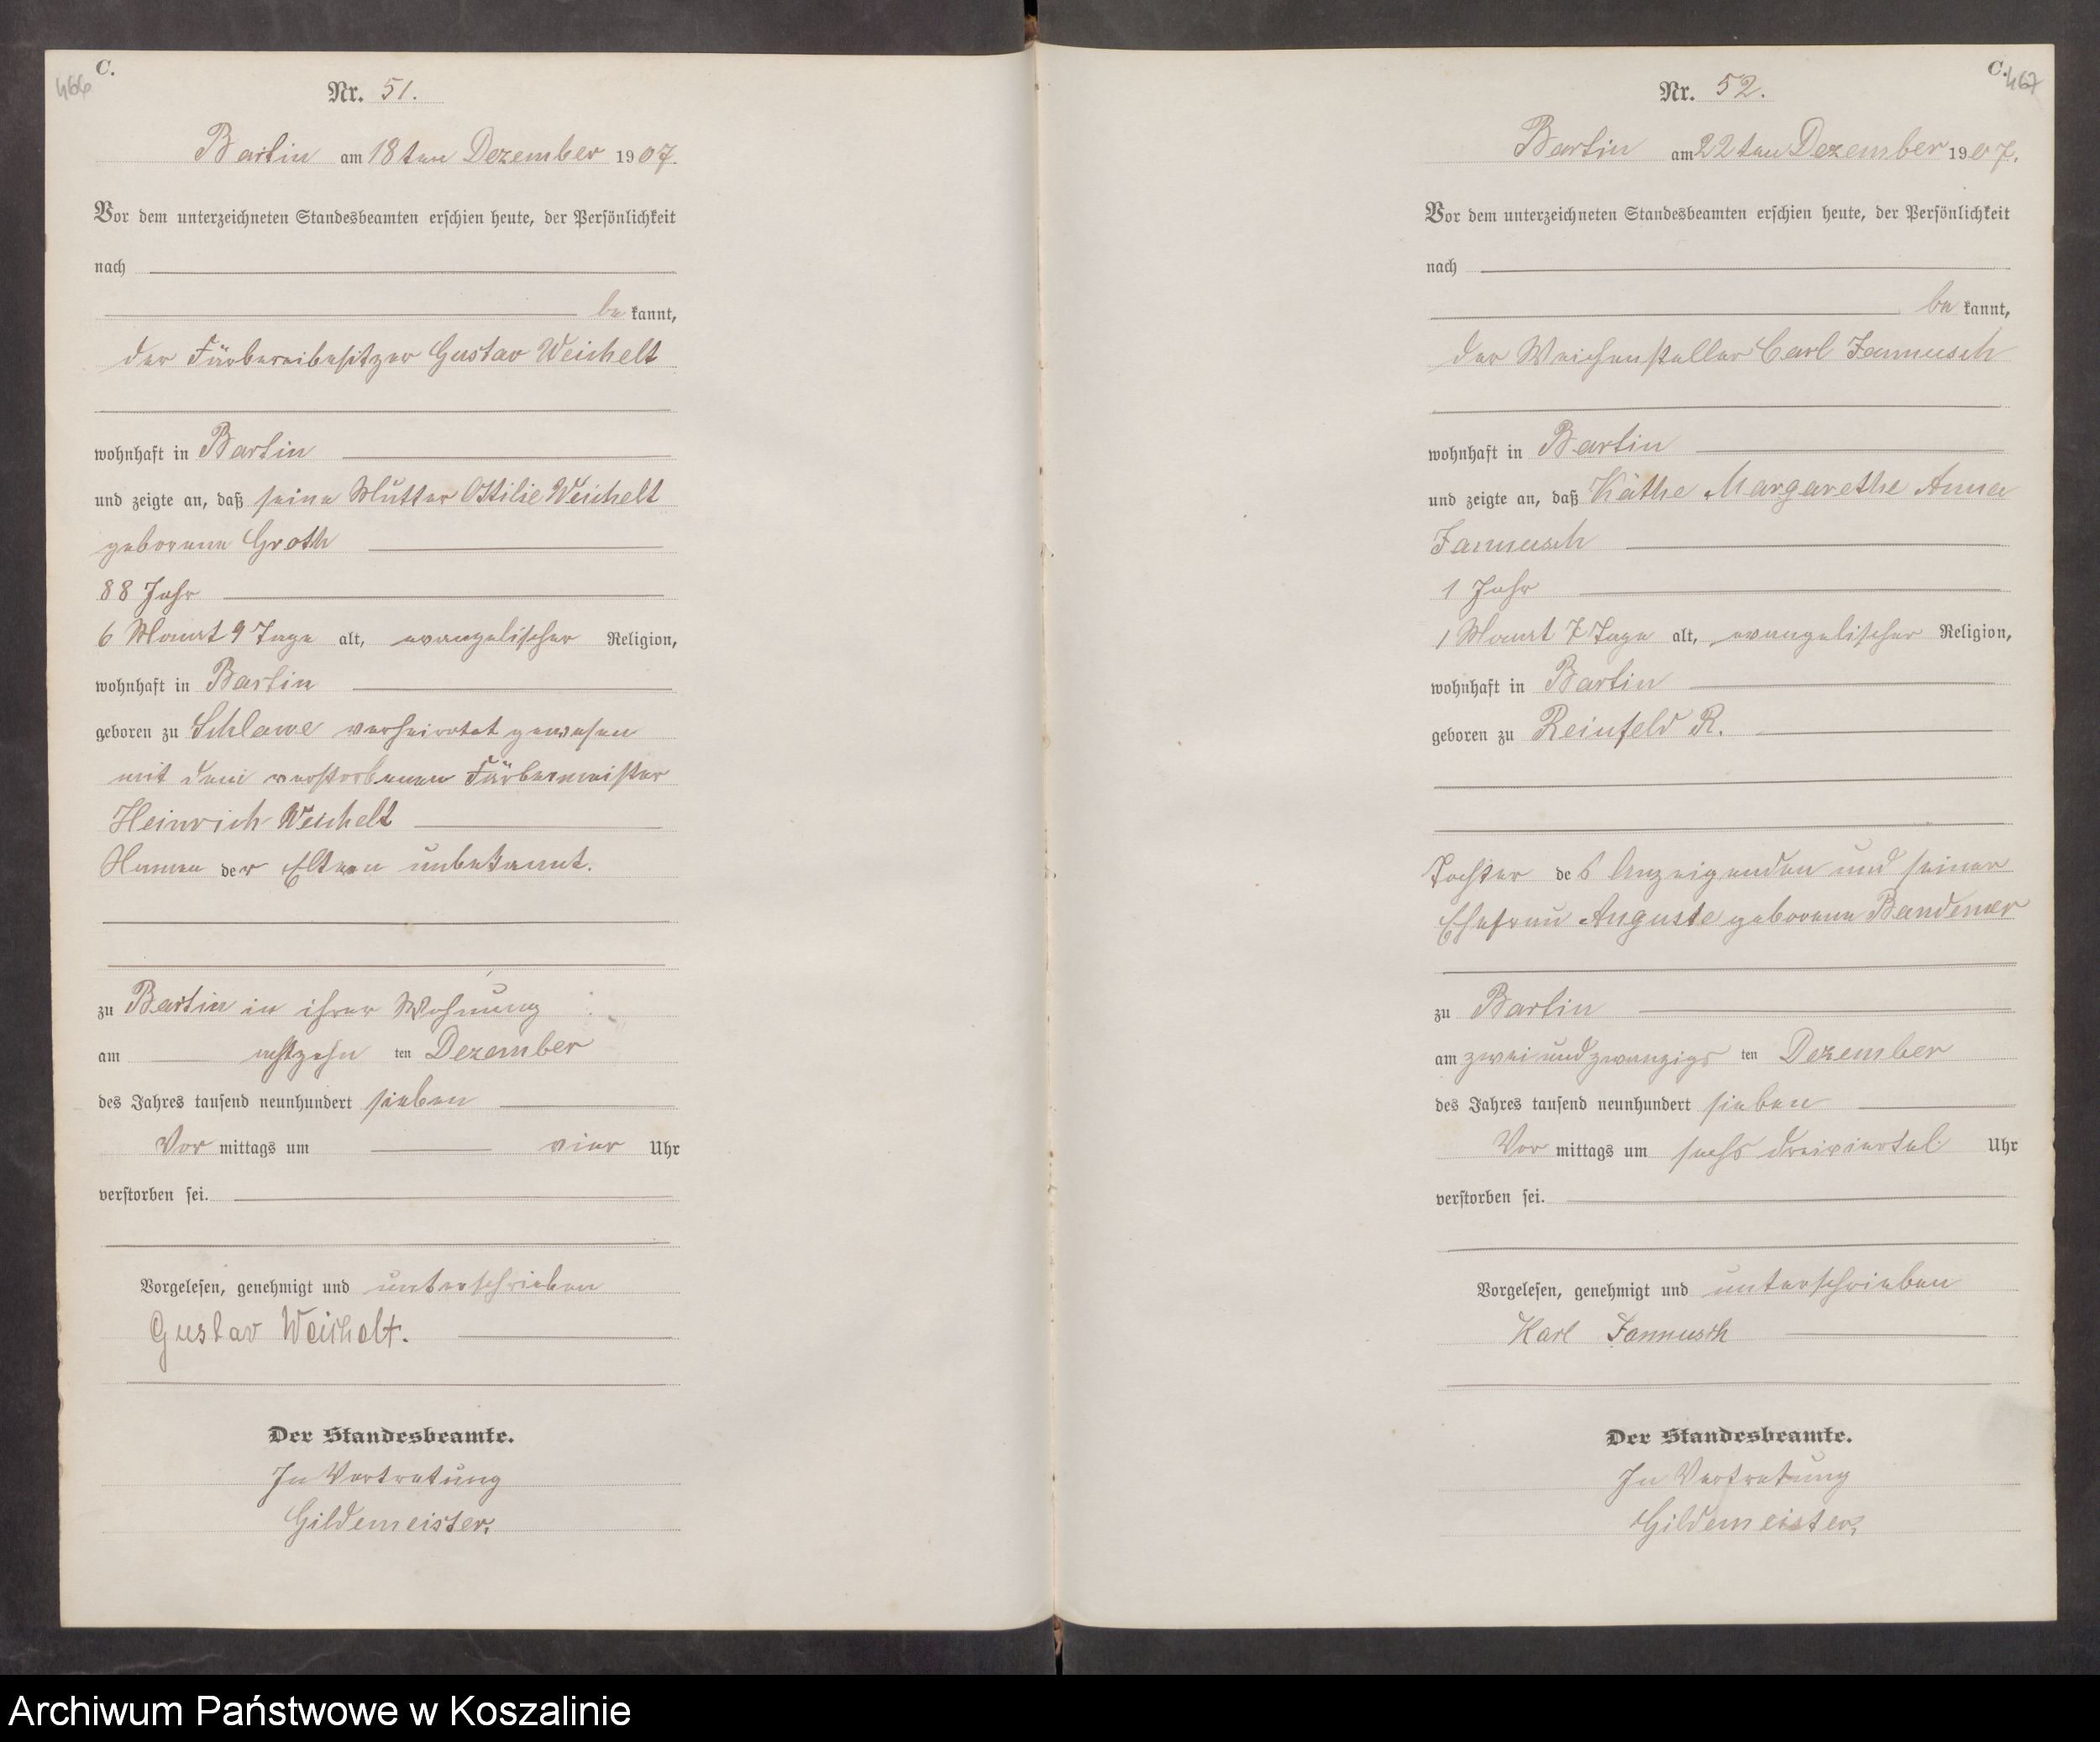 466
C.
Nr. 51.
Bartin am 18ten Dezember 1907.
Vor dem unterzeichneten Standesbeamten erschien heute, der Persönlichkeit
nach
bekannt,
der Färbereibesitzer Gustav Weichelt
wohnhaft in Bartin
und zeigte an, daß seine Mutter Ottilie Weichelt
geborene Groth
88 Jahr
6 Monat 9 Tage alt, evangelischer Religion,
wohnhaft in Bartin
geboren zu Schlawe verheiratet gewesen
mit dem verstorbenen Färbermeister
Heinrich Weichelt
Namen der Eltern unbekannt.
zu Bartin in ihrer Wohnung
am achtzehn ten Dezember
des Jahres tausend neunhundert sieben
Vor mittags um vier Uhr
verstorben sei.
Vorgelesen, genehmigt und unterschrieben
Gustav Weichelt.
Der Standesbeamte.
In Vertretung
Gildemeister.
C.
467
Nr. 52.
Bartin am 22ten Dezember 1907.
Vor dem unterzeichneten Standesbeamten erschien heute, der Persönlichkeit
nach
bekannt,
der Weichensteller Carl Jannusch
wohnhaft in Bartin
und zeigte an, daß Käthe Margarethe Anna
Jannusch
1 Jahr
1 Monat 7 Tage alt, evangelischer Religion,
wohnhaft in Bartin
geboren zu Reinfeld R.
Tochter des Anzeigenden und seiner
Ehefrau Auguste geborene Bandemer
zu Bartin
am zwei und zwanzigs ten Dezember
des Jahres tausend neunhundert sieben
Vor mittags um sechs dreiviertel Uhr
verstorben sei.
Vorgelesen, genehmigt und unterschrieben
Karl Jannusch
Der Standesbeamte.
In Vertretung
Gildemeister.
Archiwum Państwowe w Koszalinie